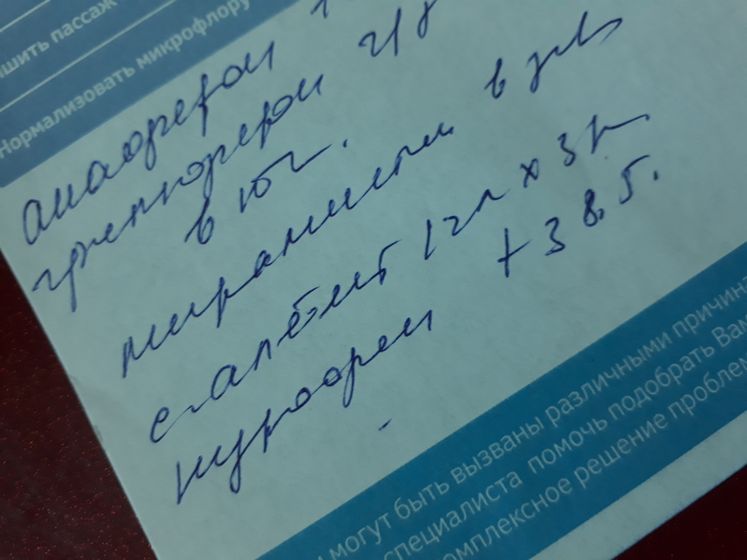 шить пассаж
Нормализовать микрофлору
анаферон
гриппферон ч/з
в нос.
мирамистин в зев
сталбит 1 гл х 3 р
нурофен +38.5.
могут быть вызваны различными причин
специалиста помочь подобрать Вам
омплексное решение проблем